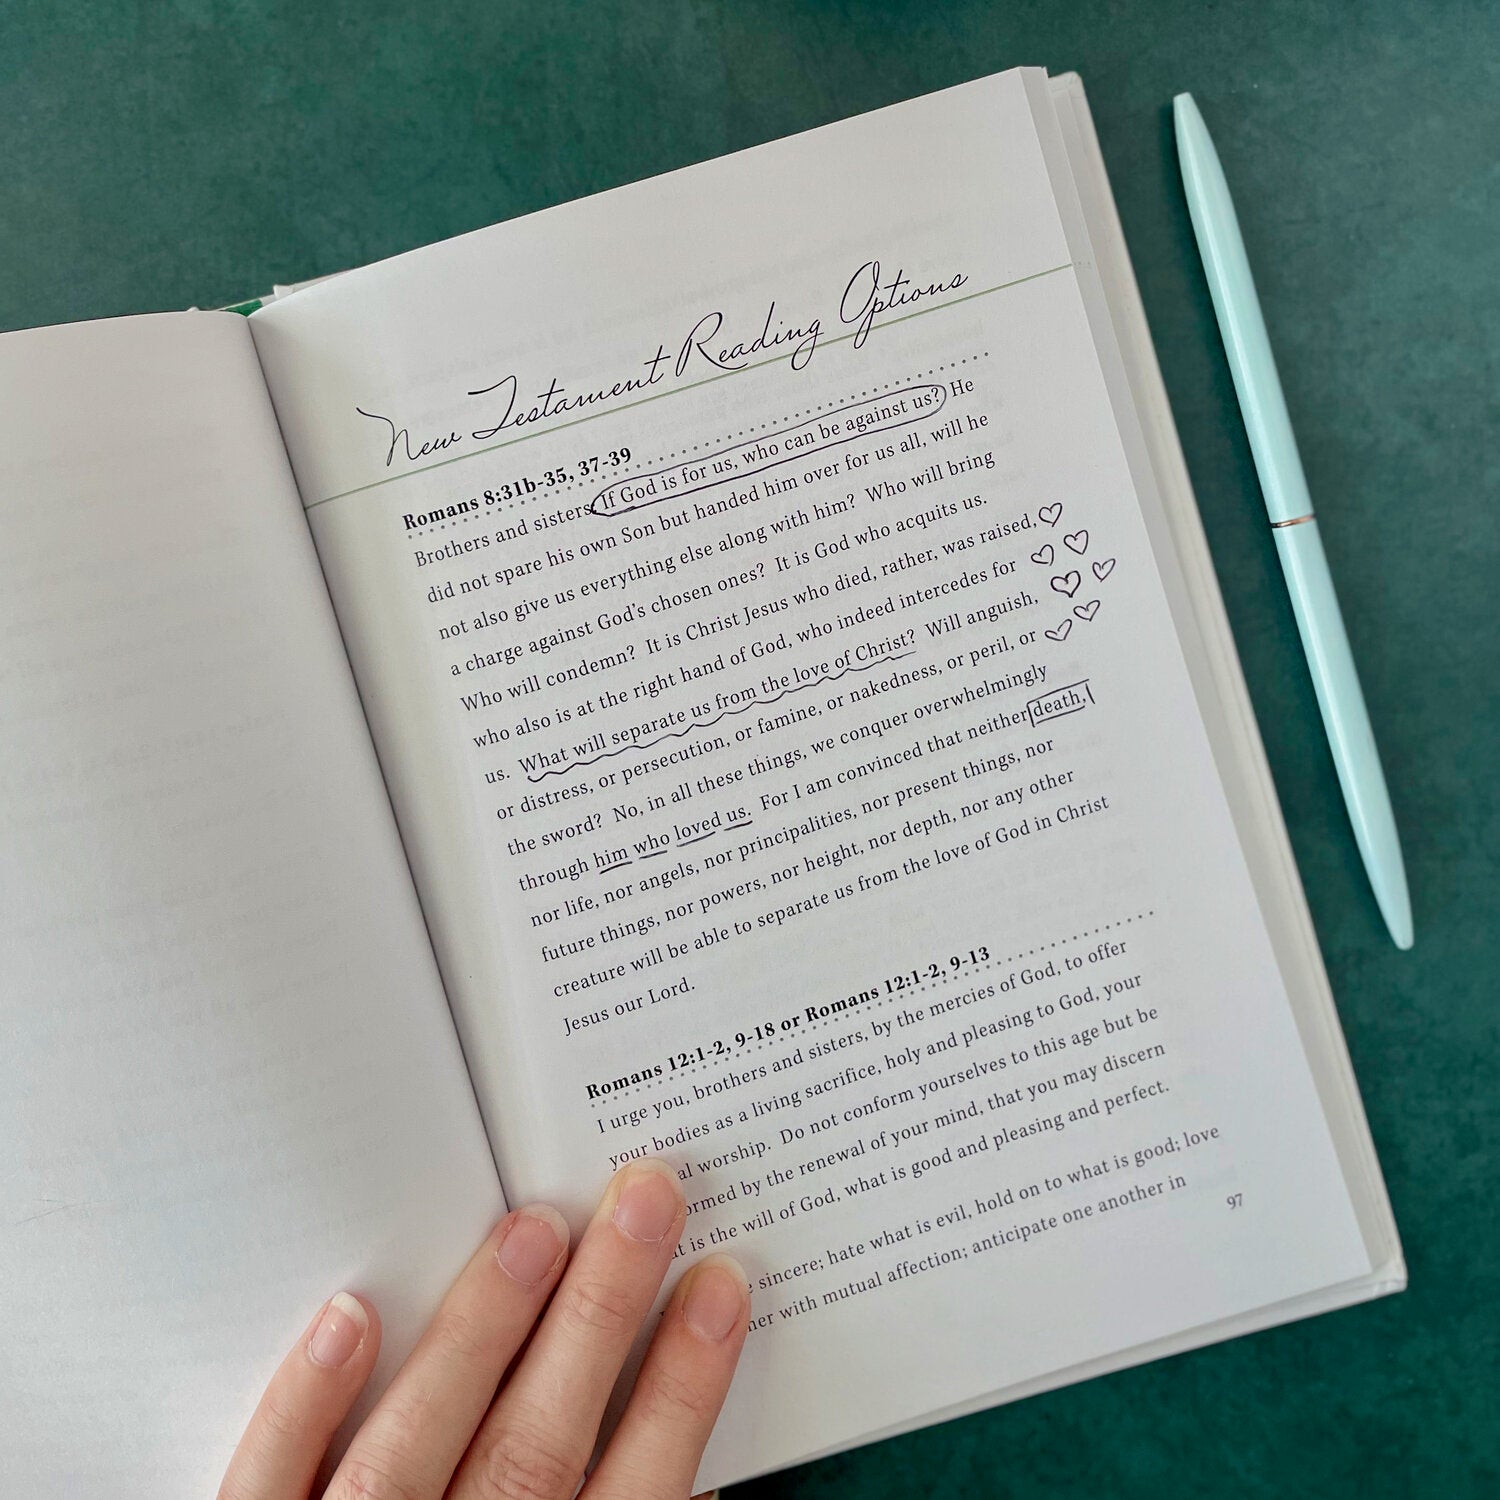 New Testament Reading Options
Romans 8:31b-35, 37-39
Brothers and sisters, If God is for us, who can be against us? He
did not spare his own Son but handed him over for us all, will he
not also give us everything else along with him? Who will bring
a charge against God's chosen ones? It is God who acquits us.
Who will condemn? It is Christ Jesus who died, rather, was raised,
who also is at the right hand of God, who indeed intercedes for
us. What will separate us from the love of Christ? Will anguish,
or distress, or persecution, or famine, or nakedness, or peril, or
the sword? No, in all these things, we conquer overwhelmingly
through him who loved us. For I am convinced that neither death,
nor life, nor angels, nor principalities, nor present things, nor
future things, nor powers, nor height, nor depth, nor any other
creature will be able to separate us from the love of God in Christ
Jesus our Lord.
Romans 12:1-2, 9-18 or Romans 12:1-2, 9-13
I urge you, brothers and sisters, by the mercies of God, to offer
your bodies as a living sacrifice, holy and pleasing to God, your
al worship. Do not conform yourselves to this age but be
ormed by the renewal of your mind, that you may discern
is the will of God, what is good and pleasing and perfect.
sincere; hate what is evil, hold on to what is good; love
her with mutual affection; anticipate one another in
97